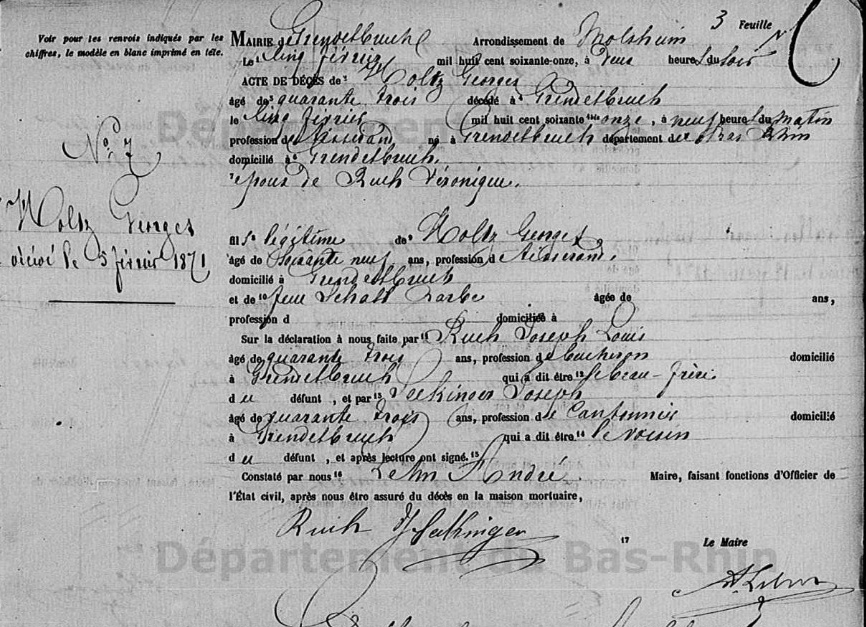 3 Feuille
Voir pour les renvois indiqués par les
chiffres, le modèle en blanc imprimé en tête.
MAIRIE de Grendelbruch Arrondissement de Molsheim
Le cinq février mil huit cent soixante-onze, à heure du soir
ACTE DE DÉCÈS de Holtz Georges
âgé de quarante trois décédé à Grendelbruch
le cinq février mil huit cent soixante onze, à neuf heure du matin
profession de tisserand né à Grendelbruch département du Bas Rhin
domicilié à Grendelbruch.
époux de Ruch Véronique.
No 7
Holtz Georges
décédé le 5 février 1871
fils légitime de Holtz Georges
âgé de soixante neuf ans, profession de tisserand.
domicilié à Grendelbruch
et de feue Schall Barbe âgée de ans,
profession d domiciliée à
Sur la déclaration à nous faite par Ruch Joseph Louis
âgé de quarante trois ans, profession de bucheron domicilié
à Grendelbruch qui a dit être le beau-frère
du défunt, et par Joseph
âgé de quarante trois ans, profession de Cantonnier domicilié
à Grendelbruch qui a dit être le voisin
du défunt, et après lecture ont signé.
Constaté par nous André Maire, faisant fonctions d'Officier de
l'État civil, après nous être assuré du décès en la maison mortuaire,
Ruch
17 Le Maire
Département du Bas-Rhin